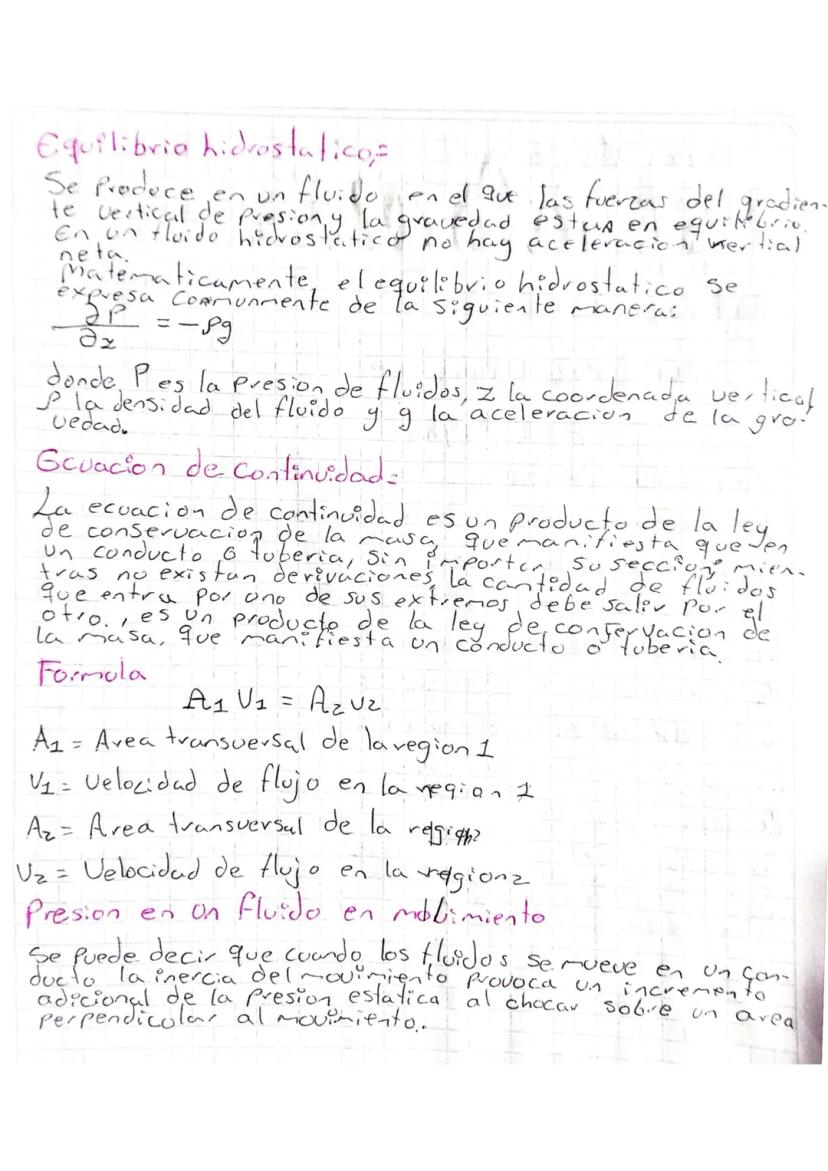 Equilibrio hidrostatico,=
Se Produce en un fluido en el que las fuerzas del gradien-
te vertical de presion y la gravedad estan en equilibrio.
En un fluido hidrostatico no hay aceleracion vertial
neta.
Matematicamente, el equilibrio hidrostatico se
expresa commonmente de la siguiente manera:
∂P/∂z = -ρg
donde P es la Presion de fluidos, z la coordenada vertical
ρ la densidad del fluido y g la aceleracion de la gra-
vedad.
Ecuacion de Continuidad=
La ecuacion de continuidad es un producto de la ley
de conservacion de la masa, que manifiesta que en
un conducto o tuberia, sin importar su seccion, mien-
tras no existan derivaciones, la cantidad de fluidos
que entra por uno de sus extremos, debe salir por el
otro., es un producto de la ley de conservacion de
la masa, que manifiesta un conducto o tuberia.
Formula
A1 V1 = A2 V2
A1 = Area transversal de la region 1
V1 = Velocidad de flujo en la region 1
A2 = Area transversal de la region2
V2 = Velocidad de flujo en la region2
Presion en un fluido en mobimiento
Se Puede decir que cuando los fluidos se mueve en un con-
ducto la inercia del movimiento provoca un incremento
adicional de la presion estatica al chocar sobre un area
perpendicolar al movimiento..